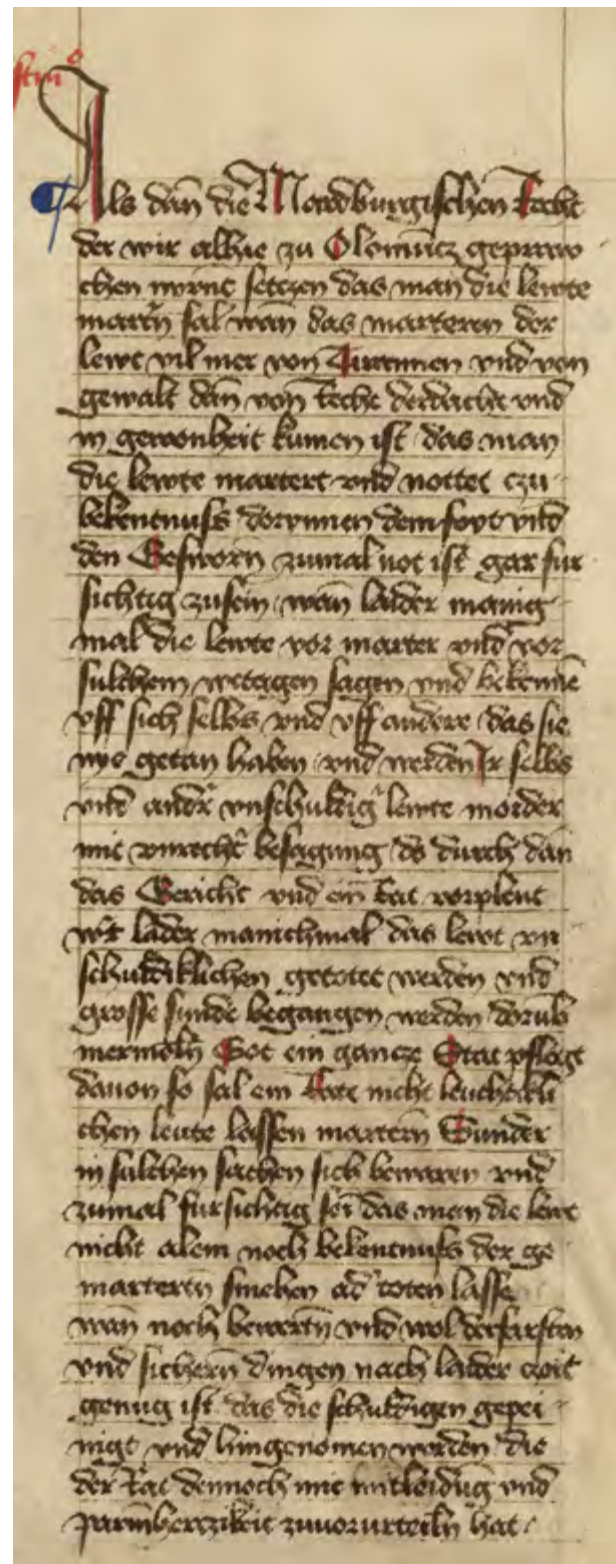 Als dan̄ die Mordburgischen Recht
der wir alhie zu Olomucz geprawo
chen nyrnt seczen das man die lewte
martn̄ sal wan̄ das marteren der
lewt vil mer von Tirannen vnd von
gewalt dan̄ von Rechte derdacht vnd
in gewonheit kumen ist das man
die lewte martert vnd nottet czu
bekentnuss dorynnen dem foyt vnd
den Gesworn zumal not ist gar fur
sichtig zusein wan̄ laider manig
mal die lewte vor marter vnd vor
sulchem wetagen sagen vnd bekenne
vff sich selbs vnd vff andere das sie
nye getan haben vnd werden Ir selbs
vnd andr̄ vnschuldiḡ lewte morder
mit vnrecht̄ besagung do durch dan̄
das Gericht vnd ein̄ Rat vorplent
wirt laider manichmal das lewt vn
schuldiklichen getotet werden vnd
grosse sunde begangen werden dorub̄
Got ein gancze Stat pflegt
dauon so sal ein Rate nicht leuchticli
chen leute lassen martern Sunder
in sulchen sachen sich bewaren vnd
zumal fursichtig sei das man die lewt
nicht alein noch bekentnuss der ge
martertn̄ smehen ad̄ toten lasse
wan̄ noch bewertn̄ vnd wol derfarsten
vnd sichern̄ dingen nach laider czeit
genug ist das die schuldigen gepei
nigt vnd hingenomen worden die
der Rat dennoch mit mitleidūg vnd
parmherczikeit zuuorurteiln̄ hat